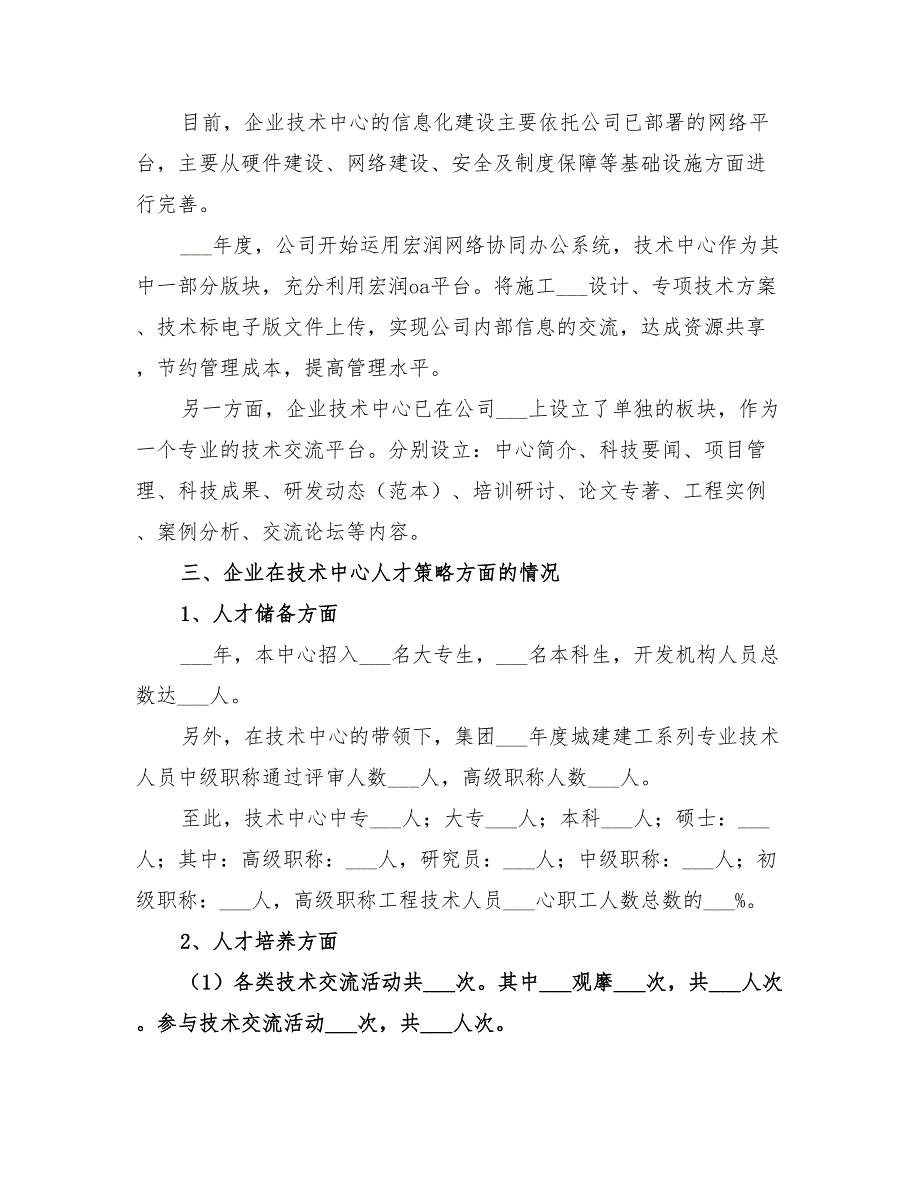 目前，企业技术中心的信息化建设主要依托公司已部署的网络平
台，主要从硬件建设、网络建设、安全及制度保障等基础设施方面进
行完善。
___年度，公司开始运用宏润网络协同办公系统，技术中心作为其
中一部分版块，充分利用宏润oa平台。将施工___设计、专项技术方案
、技术标电子版文件上传，实现公司内部信息的交流，达成资源共享
，节约管理成本，提高管理水平。
另一方面，企业技术中心已在公司___上设立了单独的板块，作为
一个专业的技术交流平台。分别设立：中心简介、科技要闻、项目管
理、科技成果、研发动态（范本）、培训研讨、论文专著、工程实例
、案例分析、交流论坛等内容。
三、企业在技术中心人才策略方面的情况
1、人才储备方面
___年，本中心招入___名大专生，___名本科生，开发机构人员总
数达___人。
另外，在技术中心的带领下，集团___年度城建建工系列专业技术
人员中级职称通过评审人数___人，高级职称人数___人。
至此，技术中心中专___人；大专___人；本科___人；硕士：___
人；其中：高级职称：___人，研究员：___人；中级职称：___人；初
级职称：___人，高级职称工程技术人员___心职工人数总数的___%。
2、人才培养方面
（1）各类技术交流活动共___次。其中___观摩___次，共___人次
。参与技术交流活动___次，共___人次。